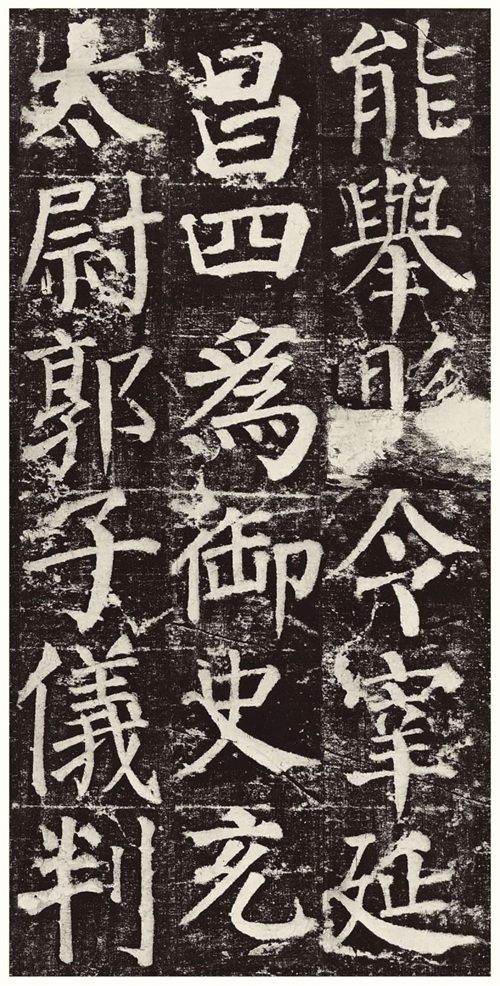 能舉令宰延
昌四爲御史充
太尉郭子儀判